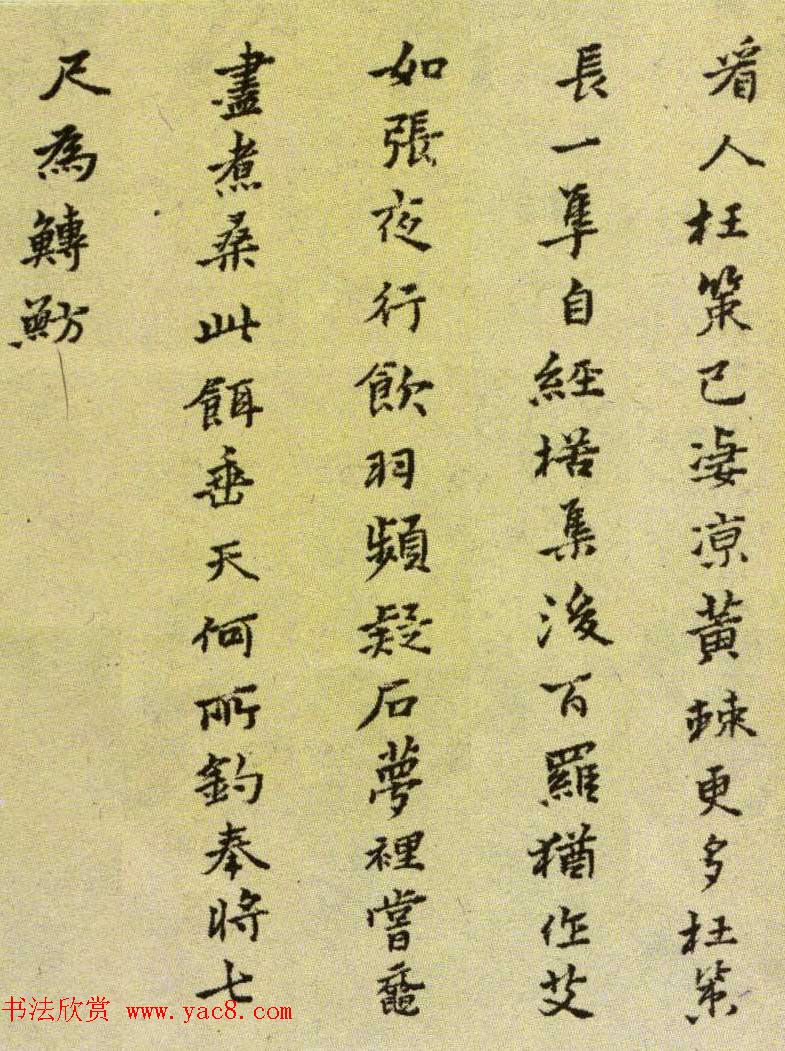 看人枉策已淒涼黃棘更多枉策
長一隼自經楛集後百羅猶作艾
如張夜行飲羽頻疑石夢裡嘗黿
盡煮桑此餌垂天何所釣奉將七
尺為鱄魴
书法欣赏 www.yac8.com